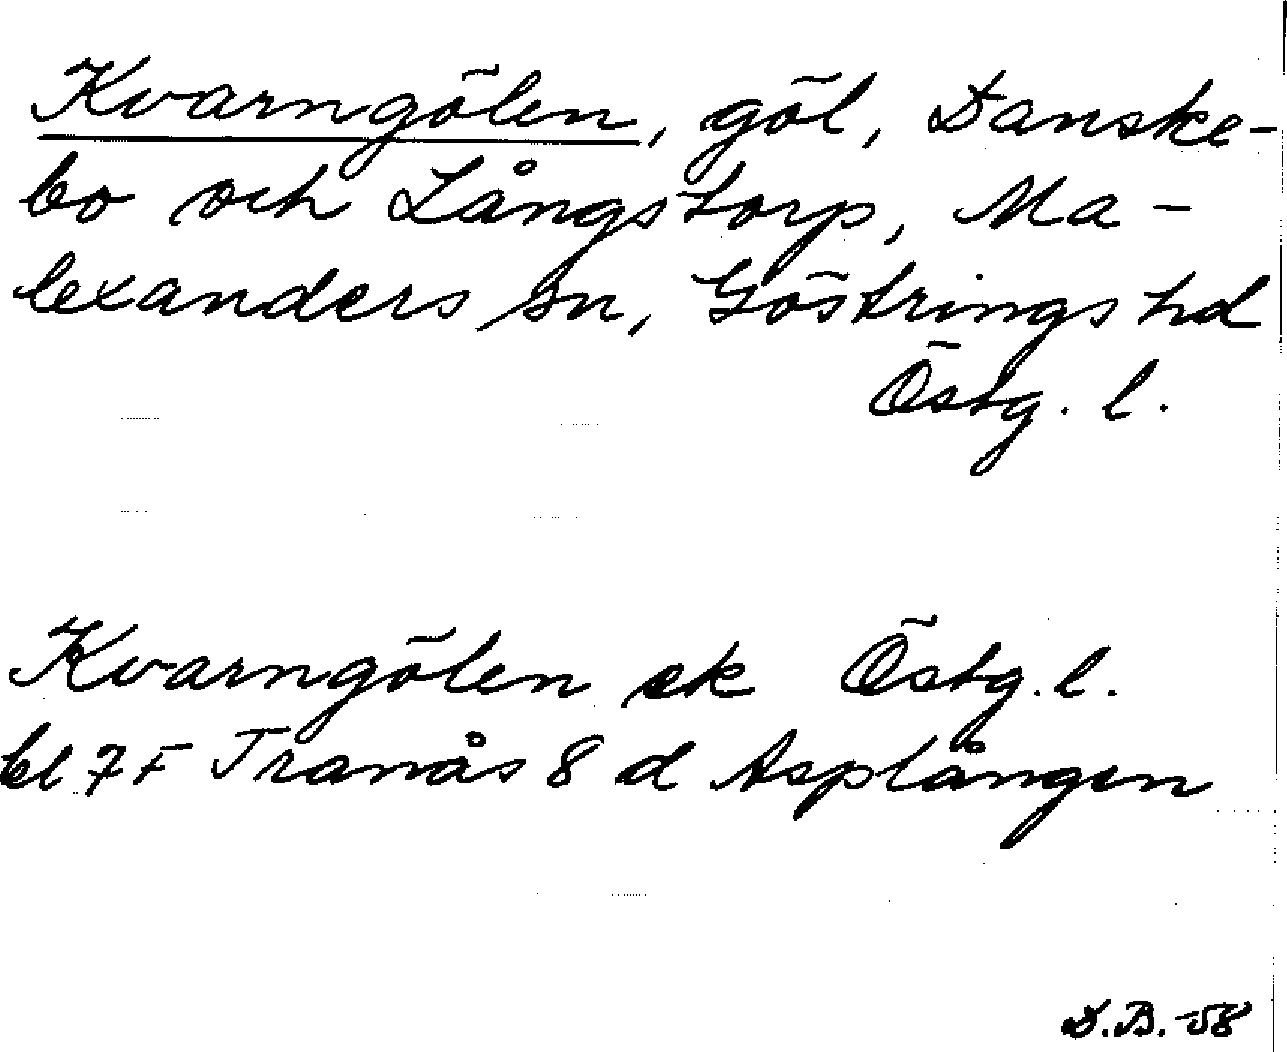 Kvarngölen, göl, Danske-
bo och Långstorp, Ma-
lexanders sn, Göstrings hd
Östg. l.
Kvarngölen ek Östg. l.
bl 7F Tranås 8 d Asplången
D.B.-58